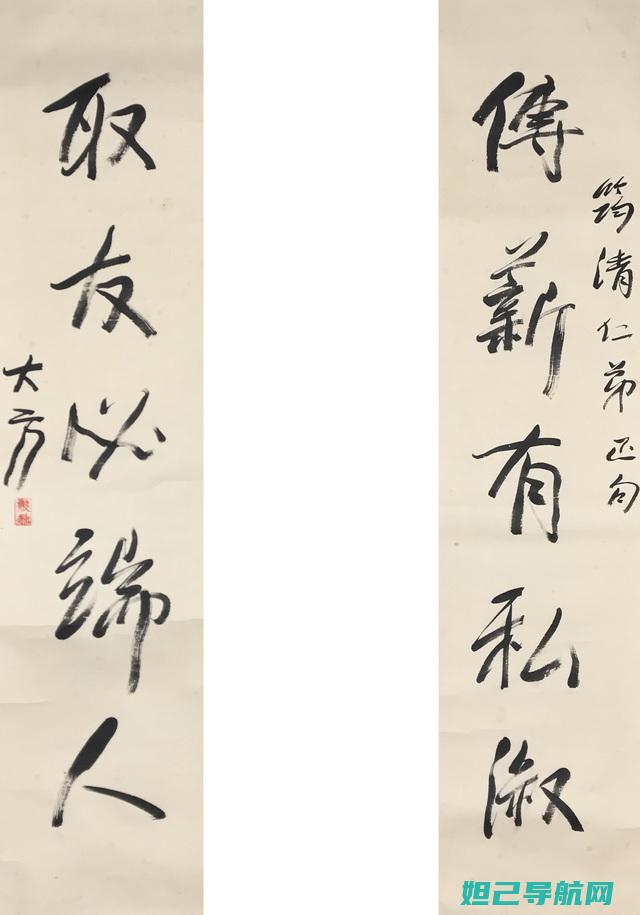 筠清仁弟正句
傳薪有私淑
取友必端人
大方
妲己导航网